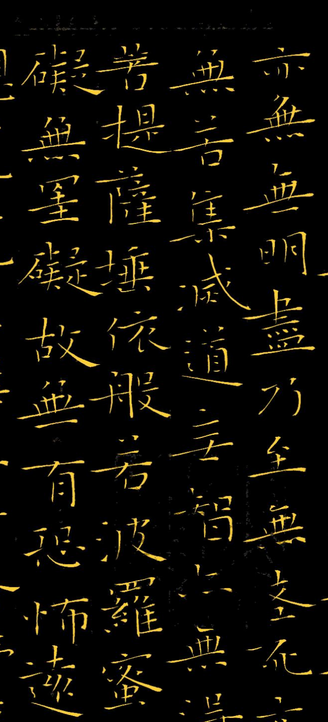 亦無無明盡乃至無老死亦
無苦集滅道無智亦無得
菩提薩埵依般若波羅蜜
礙無罣礙故無有恐怖遠